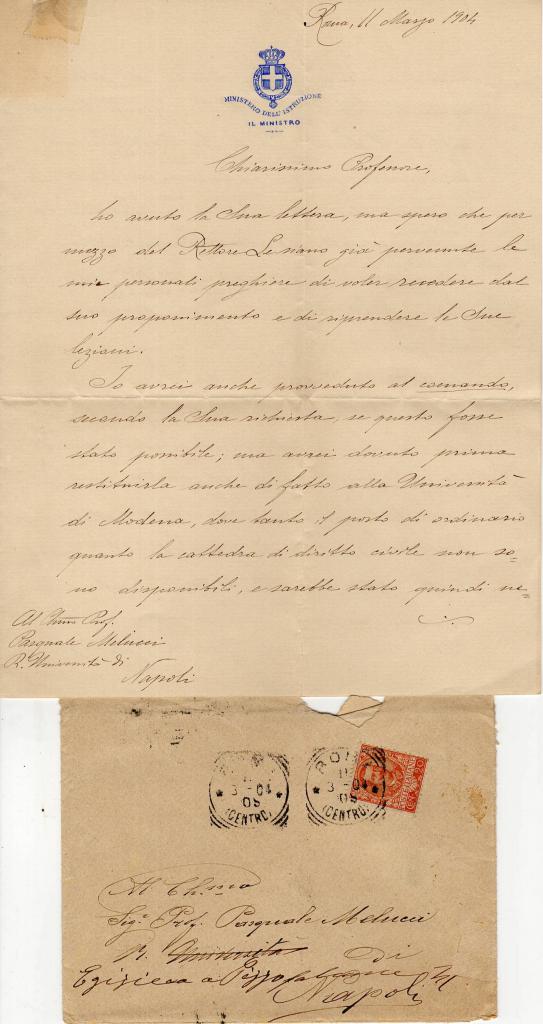 Roma, 11 Marzo 1904
MINISTERO DELL'ISTRUZIONE
IL MINISTRO
Chiarissimo Professore,
ho avuto la Sua lettera, ma spero che per
mezzo del Rettore Le siano già pervenute le
mie personali preghiere di voler recedere dal
suo proponimento e di riprendere le Sue
lezioni.
Io avrei anche provveduto al comando,
secondo la Sua richiesta, se questo fosse
stato possibile; ma avrei dovuto prima
restituirla anche di fatto alla Università
di Modena, dove tanto il posto di ordinario
quanto la cattedra di diritto civile non so-
no disponibili, e sarebbe stato quindi ne-
Al Prof.
Pasquale Melucci
R. Università di
Napoli
ROMA
11
3-04
(CENTRO)
ROMA
11
3-04
(CENTRO)
Al Ch.mo
Sig. Prof. Pasquale Melucci
R. Università di
Egiziaca a Pizzofalcone
Napoli